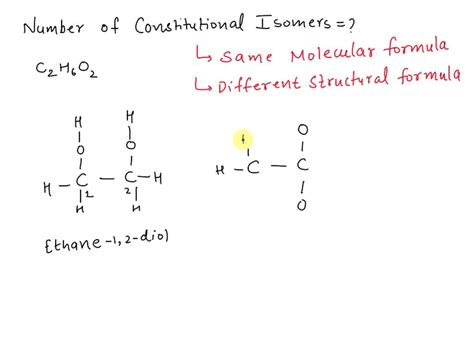 Number of Constitutional Isomers=?
↳ Same Molecular formula
↳ Different structural formula
C2H6O2
H H
O O
H - C - C - H
1 2 2
H H
Ethane -1,2-diol
O
H - C - C
O